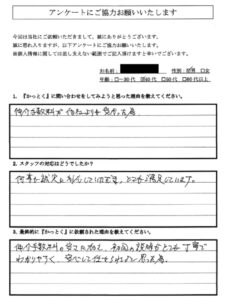 アンケートにご協力お願いいたします
今回は当社にご依頼いただきまして、誠にありがとうございます。
誠に恐れ入りますが、以下アンケートにご協力お願いいたします。
※個人情報に関しては差し支えない範囲でご記入頂けますと幸いでございます。
お名前
性別：☑男 □女
年代：□～30代 □40代 □50代 □60代以上
1. 『かっとく』に問い合わせをしてみようと思った理由を教えてください。
仲介手数料が他社よりも安かった為
2. スタッフの対応はどうでしたか？
何事も誠実に対応していただき、とても満足しています。
3. 最終的に『かっとく』に依頼された理由を教えてください。
仲介手数料の安さに加えて、初回の説明がとても丁寧で
わかりやすく、安心して任せられると思った為